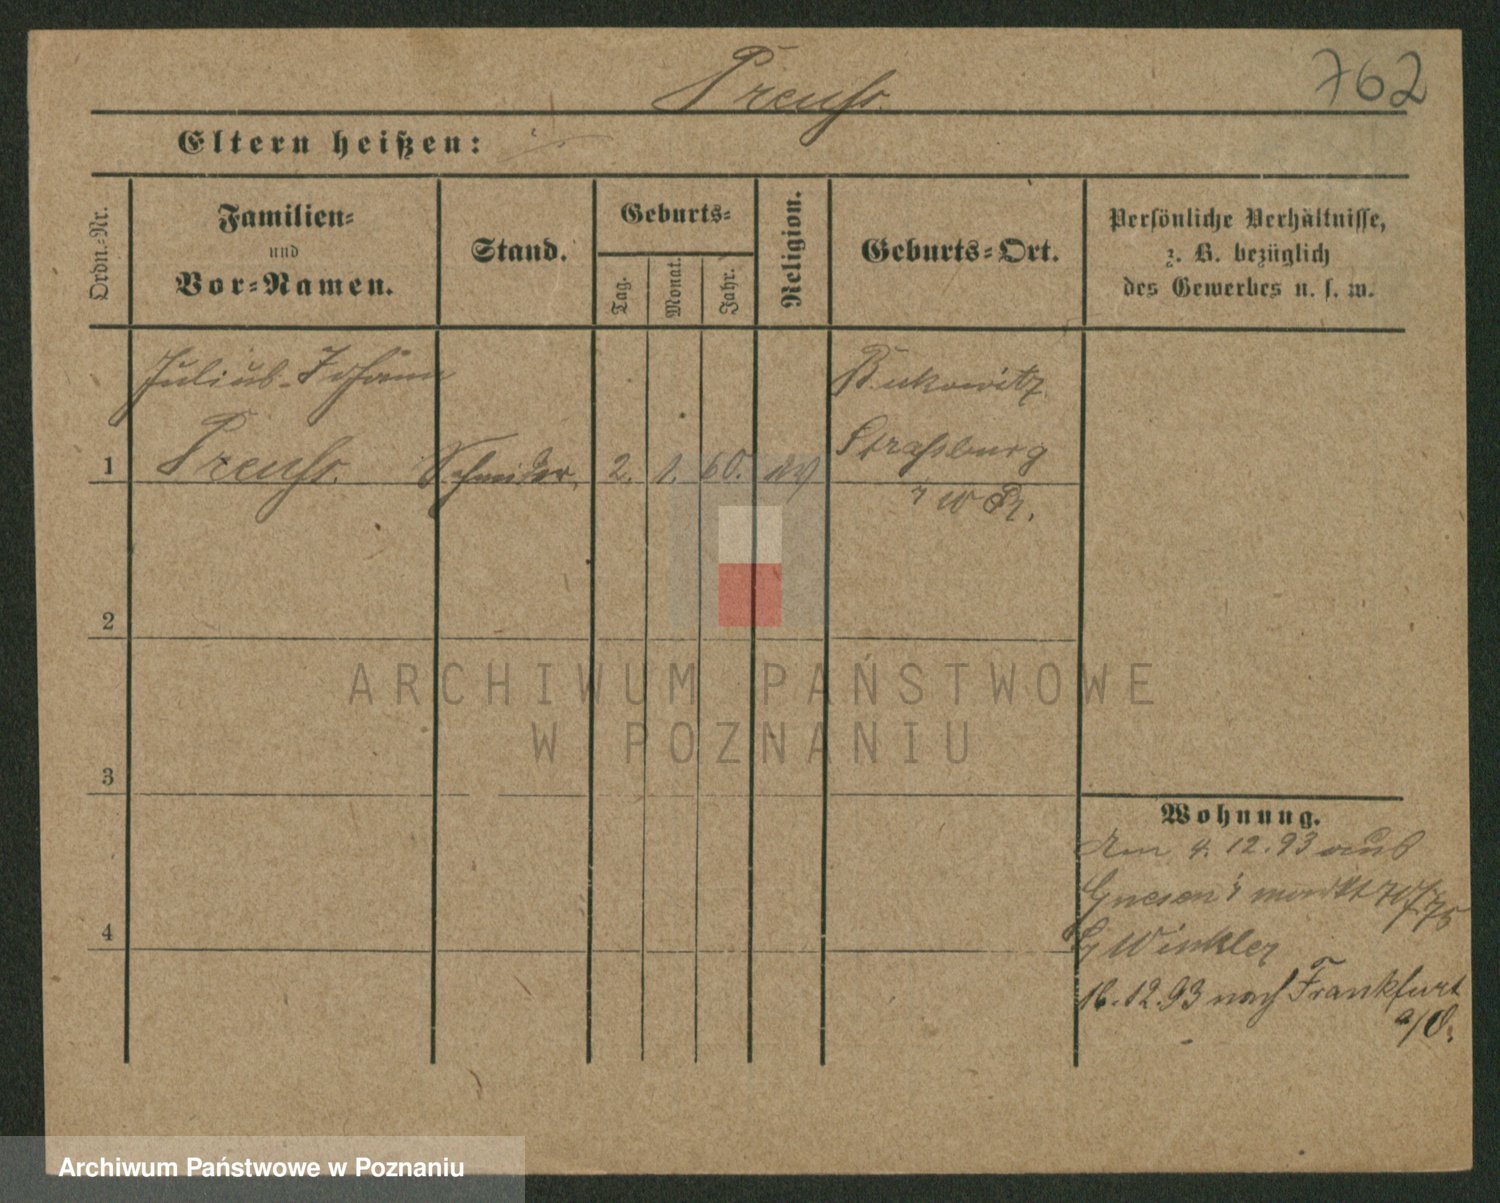 762
Preuss.
Eltern heißen:
Ordn.-Nr.
Familien-
und
Vor-Namen.
Stand.
Geburts-
Tag.
Monat.
Jahr.
Religion.
Geburts-Ort.
Persönliche Verhältnisse,
z. B. bezüglich
des Gewerbes u. s. w.
Julius Johann
Preuss.
1
Schneider.
2. 1. 60. ev
Bukowitz
Strasburg
i W Pr.
2
3
4
Wohnung.
Am 4. 12. 93 aus
Gnesen
Winkler
16.12.93 nach Frankfurt
a/O.
ARCHIWUM PAŃSTWOWE
W POZNANIU
Archiwum Państwowe w Poznaniu